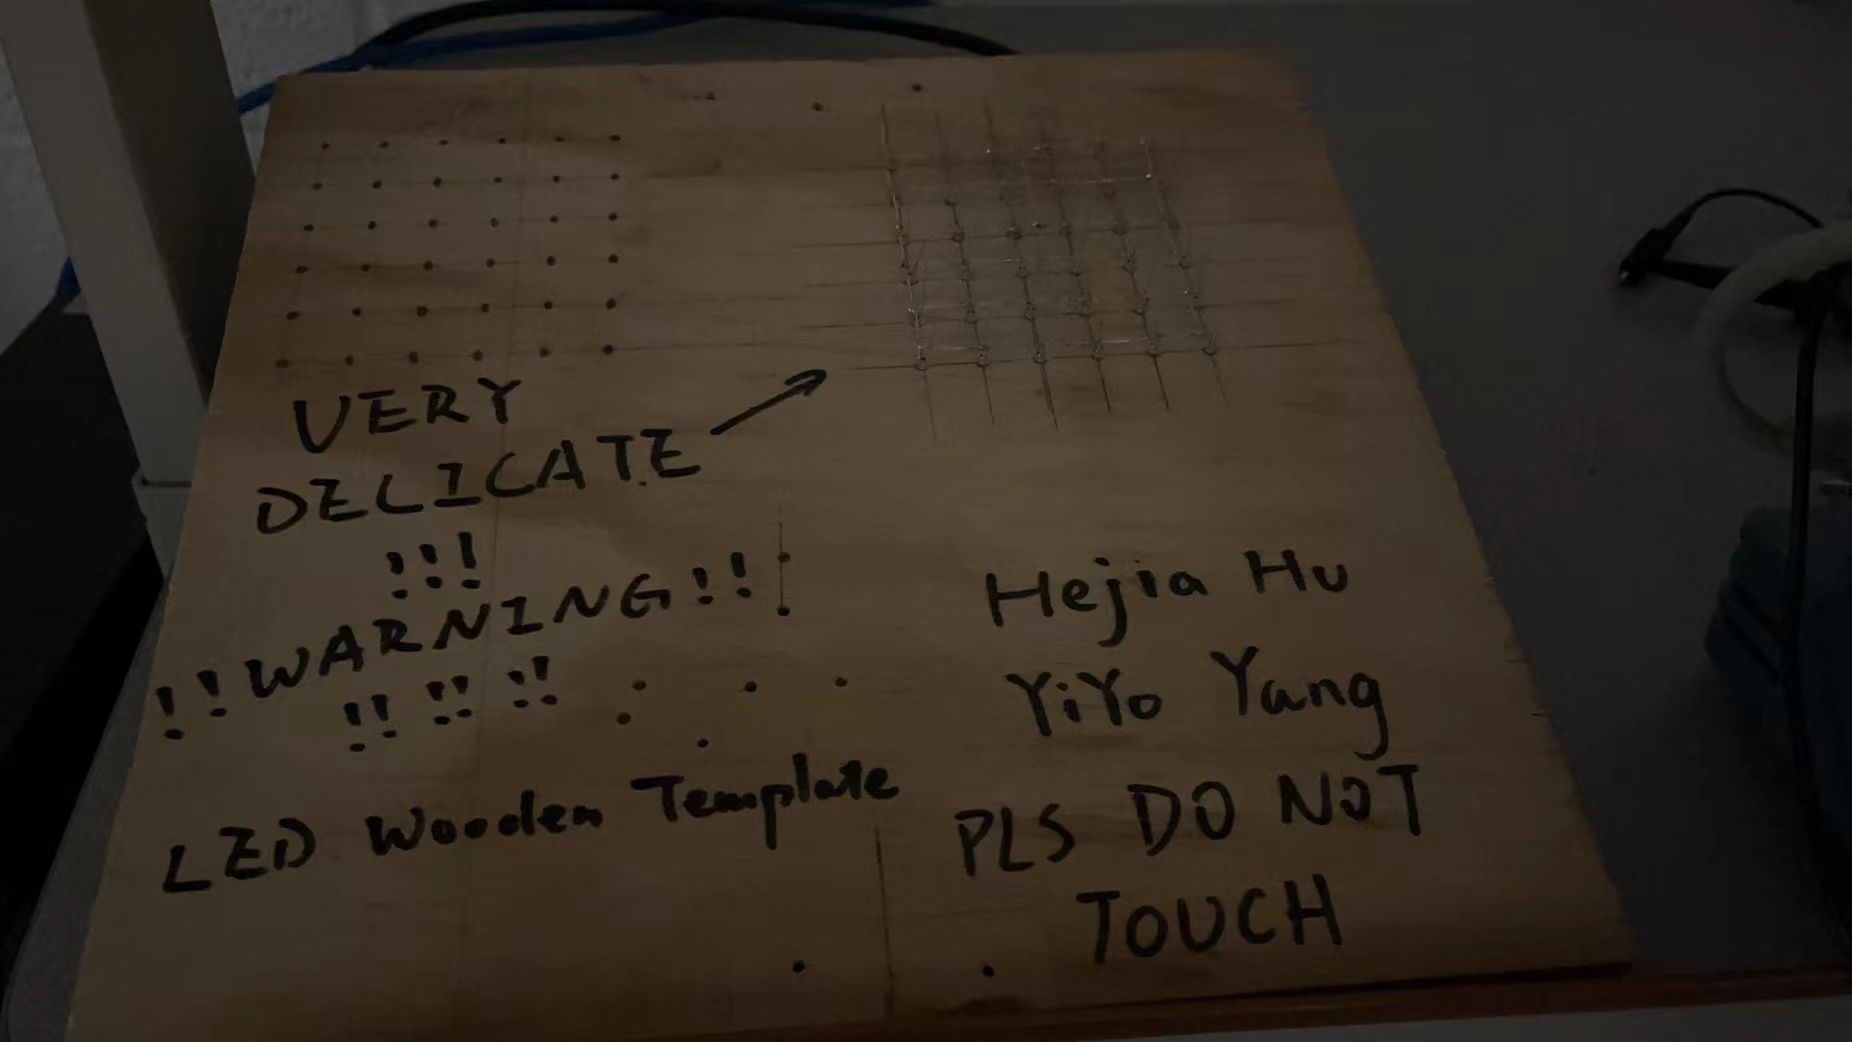 VERY
DELICATE
!!!
!!WARNING!!
!! !! !!
LED Wooden Template
Hejia Hu
YiYo Yang
PLS DO NOT
TOUCH